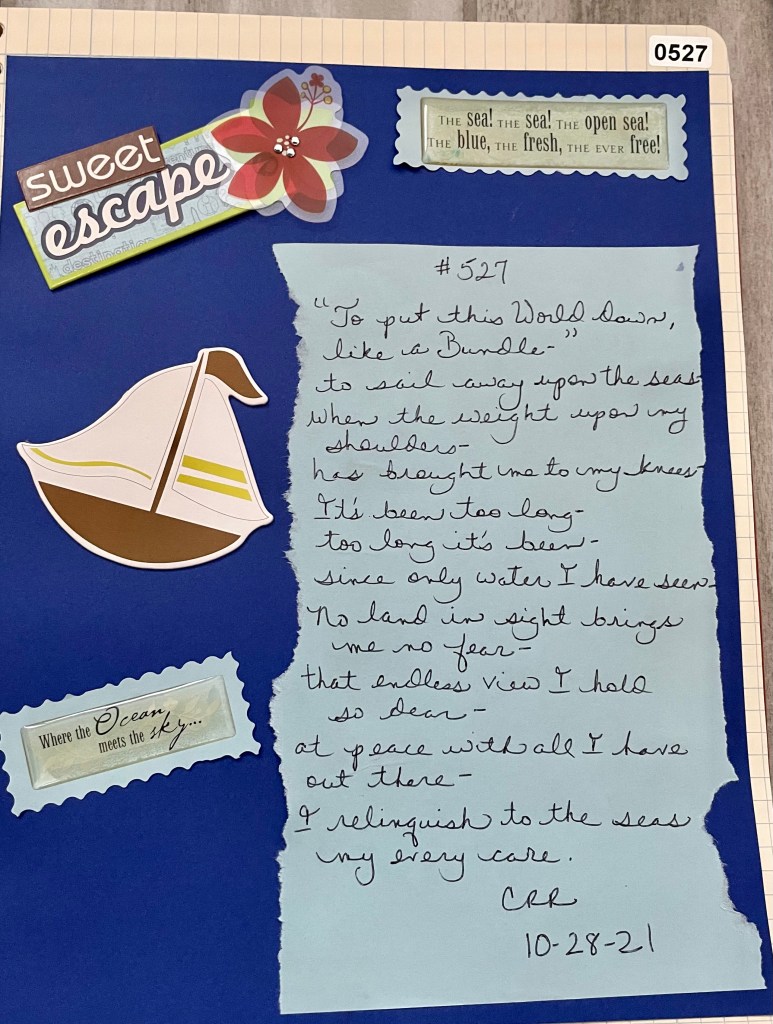 0527
sweet
escape
destination
THE sea! THE sea! THE open sea!
THE blue, THE fresh, THE EVER free!
#527
"To put this World down,
like a Bundle-"
to sail away upon the seas
when the weight upon my
shoulders-
has brought me to my knees-
It's been too long-
too long it's been-
since only water I have seen-
No land in sight brings
me no fear-
that endless view I hold
so dear-
at peace with all I have
out there-
I relinquish to the seas
my every care.
CRR
10-28-21
Where the Ocean
meets the sky...